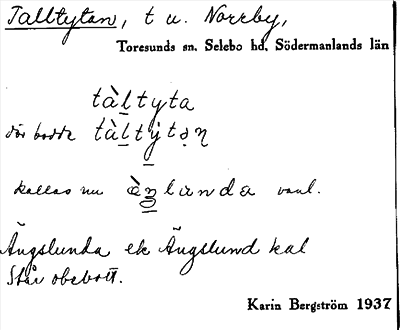 Talltytan, t u. Norrby,
Toresunds sn, Selebo hd, Södermanlands län
tàl̲tyta
där bodde tàl̲ty̲tə̣ṇ
kallas nu lunda vanl.
Ängslunda el. Ängslund kal
Står obebott.
Karin Bergström 1937